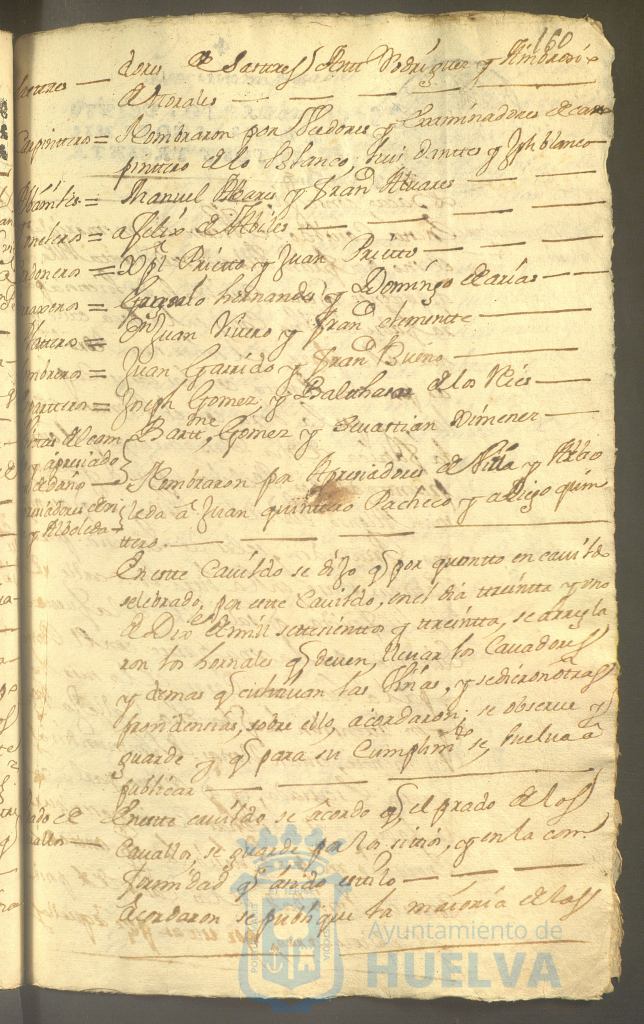 160
dores de Sastres Antt Rodriguez y Ambrosio
de Morales
Carpinteros = Nombraron por Veedores y Examinadores de car
pintero de lo Blanco, Luis dantes y Jph blanco
Manuel Alvares y Fran.co Alvares
a Felix de Abiles
Xpl Prieto y Juan Prieto
Gonzalo hernandes y Domingo de arias
Juan Vivero y Fran.co clemente
Juan Garrido y Fran.co Bueno
Joseph Gomez y Balthasar de los Reies
Bartt.me Gomez y Sevastian Ximenez
y apreciado
Nombraron por Apreciadores de Viña y Arbo
y Arboleda
leda â Juan quintero Pacheco y a Diego quin
ttero
En este Cavildo se dijo q.e por quanto en cavildo
selebrado, por este Cavildo, en el dia treinta y uno
de Dix.re de mill settesientos y treinta, se arregla
ron los hornales q.e deven llevar los Cavadores
y demas q.e cultivan las Viñas, y se dieron otras
providencias, sobre ello, acordaron, se observe y
guarde y q.e para su Cumplim.to se buelva â
publicar
En este cavildo se acordo q.e el prado de los
Cavallos, se guarde por los sitios, y en la con
formidad q.e a sido estilo
Acordaron se publique la maioria de los
Ayuntamiento de
HUELVA